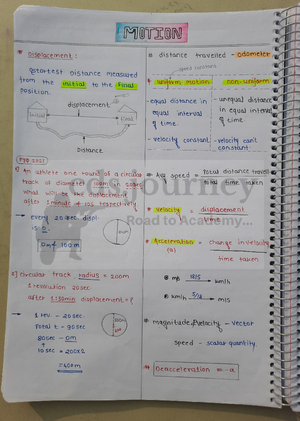 MOTION
* Displacement :
shortest Distance measured
from the initial to the Final
position.
displacement
Initial
Final
Distance
PYQ 2021
1) An athlete one round of a circular
track of diameter
what will be this displacement
after 5 minute & 10s respectively
→ Every 20 sec displ.
is 0.
0m & 100m
2) Circular track radius = 200m
1 revolution 20sec
after 1:30min displacement = ?
→ 1 rev - 20sec
Total t - 90sec
80sec - 0m
10sec = 200×2
= 400m
* distance travelled - odometer
speed constant
* uniform motion
non-uniform
-equal distance in
equal interval
of time.
-velocity constant.
-unequal distance
in equal interval
of time.
-velocity can't
constant.
* Avg speed = Total distance travel
Total time taken
* velocity = displacement
time
* Acceleration = change in velocity
(a) time taken
m/s 18/5 km/h
km/h 5/18 m/s
* magnitude & velocity - vector
speed - scalar quantity.
* Deacceleration = -a
Road to Academy...